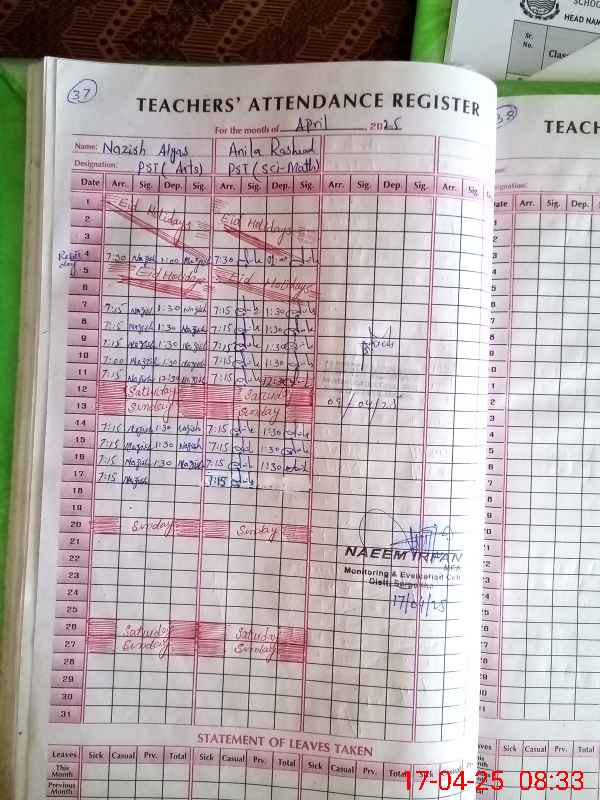 SCHOOL
HEAD NAM
Sr. No.
Clas
37
TEACHERS' ATTENDANCE REGISTER
For the month of April, 2025
Name: Nazish Alyas Anila Rasheed
Designation: PST (Arts) PST (Sci-Math)
Date Arr. Sig. Dep. Sig. Arr. Sig. Dep. Sig. Arr. Sig. Dep. Sig. Arr. Sig.
1 Eid Holidays
2 Eid Holidays
3
4 7:30 Nazish 1:00 Nazish 7:30
5 Eid Holiday Eid Holidays
6
7 7:15 Nazish 1:30 Nazish 7:15 1:30
8 7:15 Nazish 1:30 Nazish 7:15 1:30
9 7:15 Nazish 1:30 Nazish 7:15 1:30
10 7:00 Nazish 1:30 Nazish 7:15 1:30
11 7:15 Nazish 12:30 Nazish 7:15 12:30
12 Saturday Saturday
13 Sunday Sunday
09/04/25
14 7:15 Nazish 1:30 Nazish 7:15 1:30
15 7:15 Nazish 1:30 Nazish 7:15 1:30
16 7:15 Nazish 1:30 Nazish 7:15 1:30
17 7:15 Nazish 7:15
18
19
20 Sunday Sunday
21
NAEEM IRFAN
22
MEA
Monitoring & Evaluation Cell
23
Distt. Sargodha
24
17/04/25
25
26 Saturday Saturday
27 Sunday Sunday
28
29
30
31
STATEMENT OF LEAVES TAKEN
Leaves Sick Casual Prv. Total Sick Casual Prv. Total Sick Casual Prv. Total Sick Casual Prv.
This Month
Previous Month
38
TEACH
Designation:
Date Arr. Sig. Dep. Sig.
17-04-25 08:33